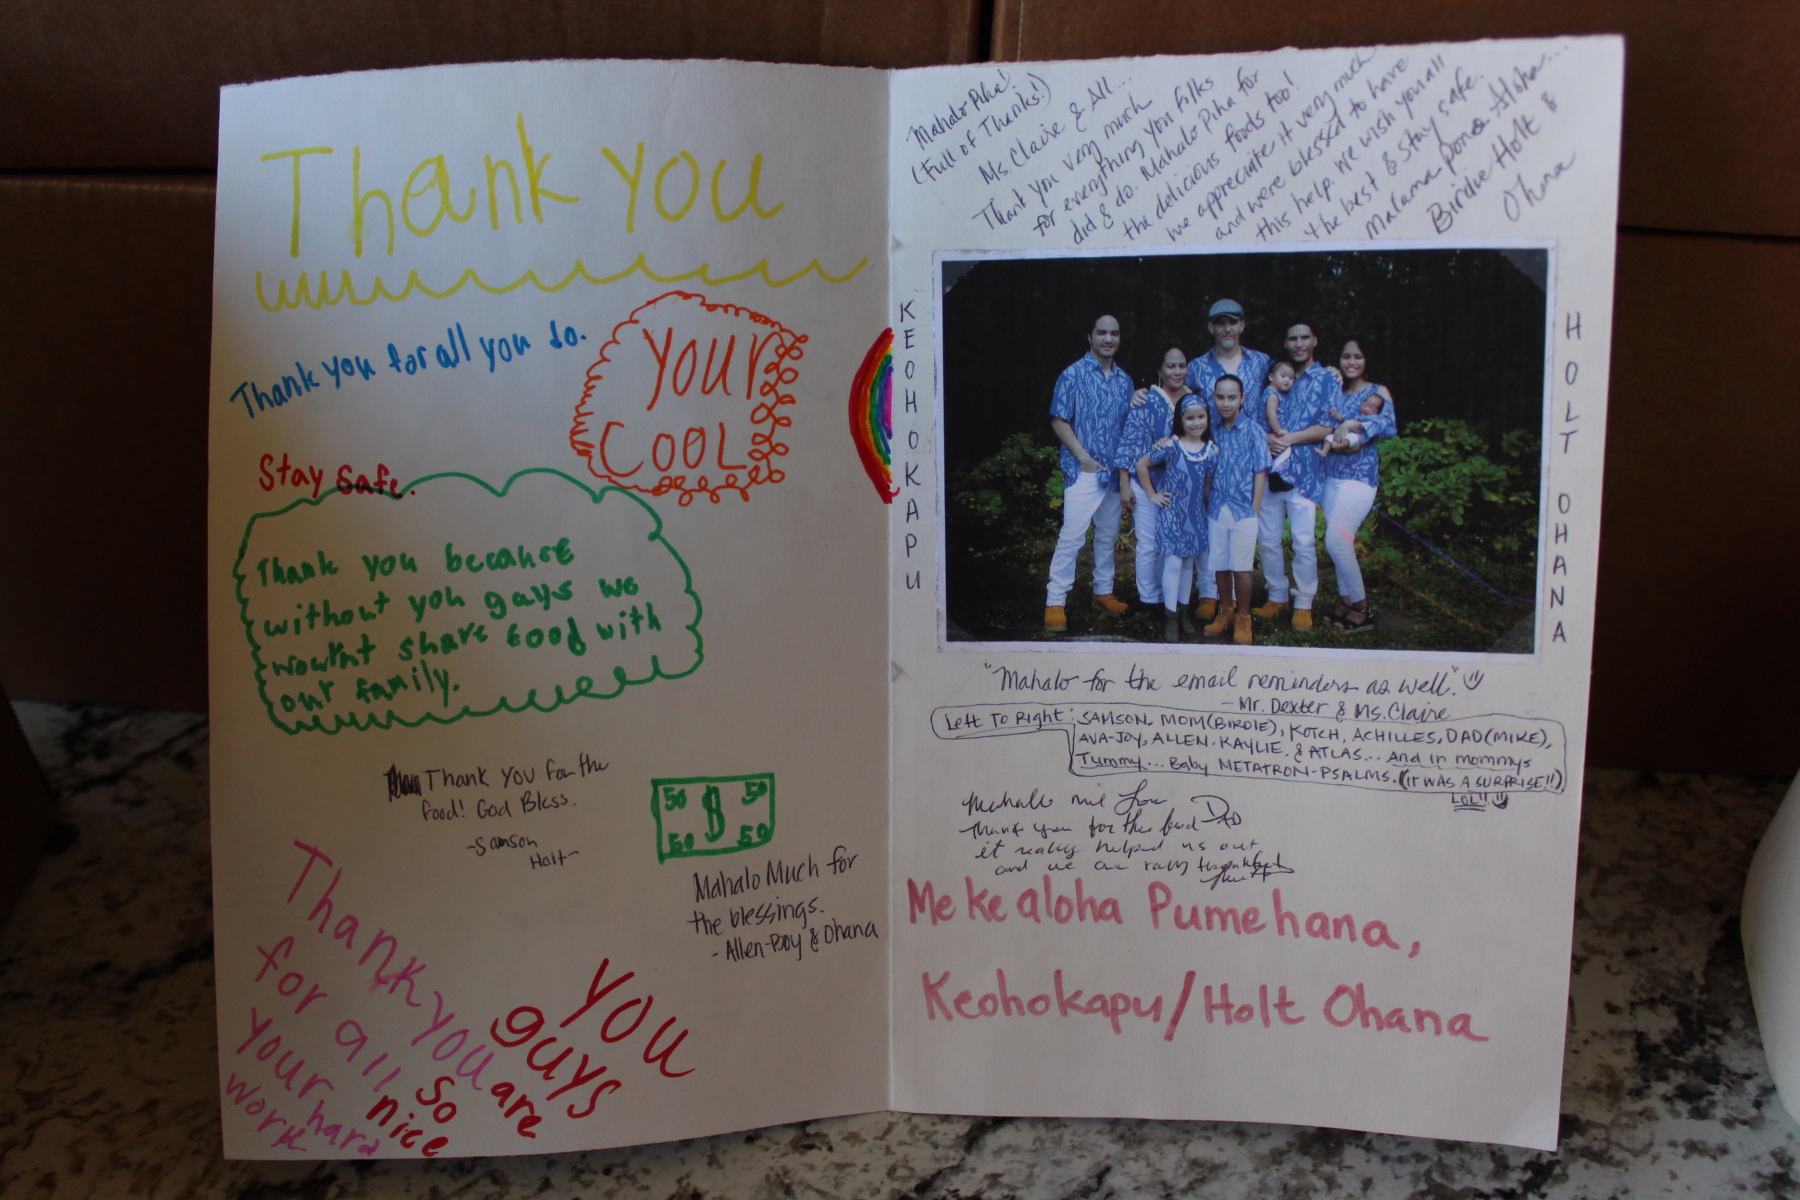 Thank you
Thank you for all you do.
YOUR
COOL
Stay Safe.
Thank you because
without you gays we
wouldnt share food with
our family.
Thank you for the
food! God Bless.
-Samson
Holt-
50 $ 50
50 50
Mahalo Much for
the blessings.
- Allen-Boy & Ohana
Thank you
for all
your hard
work
YOU
guys
are
so
nice
Mahalo Piha!
(Full of Thanks!)
Ms. Claire & All...
Thank you very much
for everything you folks
did & do. Mahalo Piha for
the delicious foods too!
We appreciate it very much
and were blessed to have
this help. We wish you all
the best & stay safe.
Malama Pono Aloha...
Birdie Holt &
Ohana
KEOHOKAPU
HOLT OHANA
"Mahalo for the email reminders as well."
- Mr. Dexter & Ms. Claire
Left To Right: SAMSON, MOM(BIRDIE), KOTCH, ACHILLES, DAD(MIKE),
AVA-JOY, ALLEN-KAYLIE, & ATLAS... And in mommys
Tummy... Baby METATRON-PSALMS. (IT WAS A SURPRISE!!)
LOL!!
Mahalo nui
Thank you for the food DAD
it really helped us out
and we are really thankful
Me ke aloha Pumehana,
Keohokapu/Holt Ohana